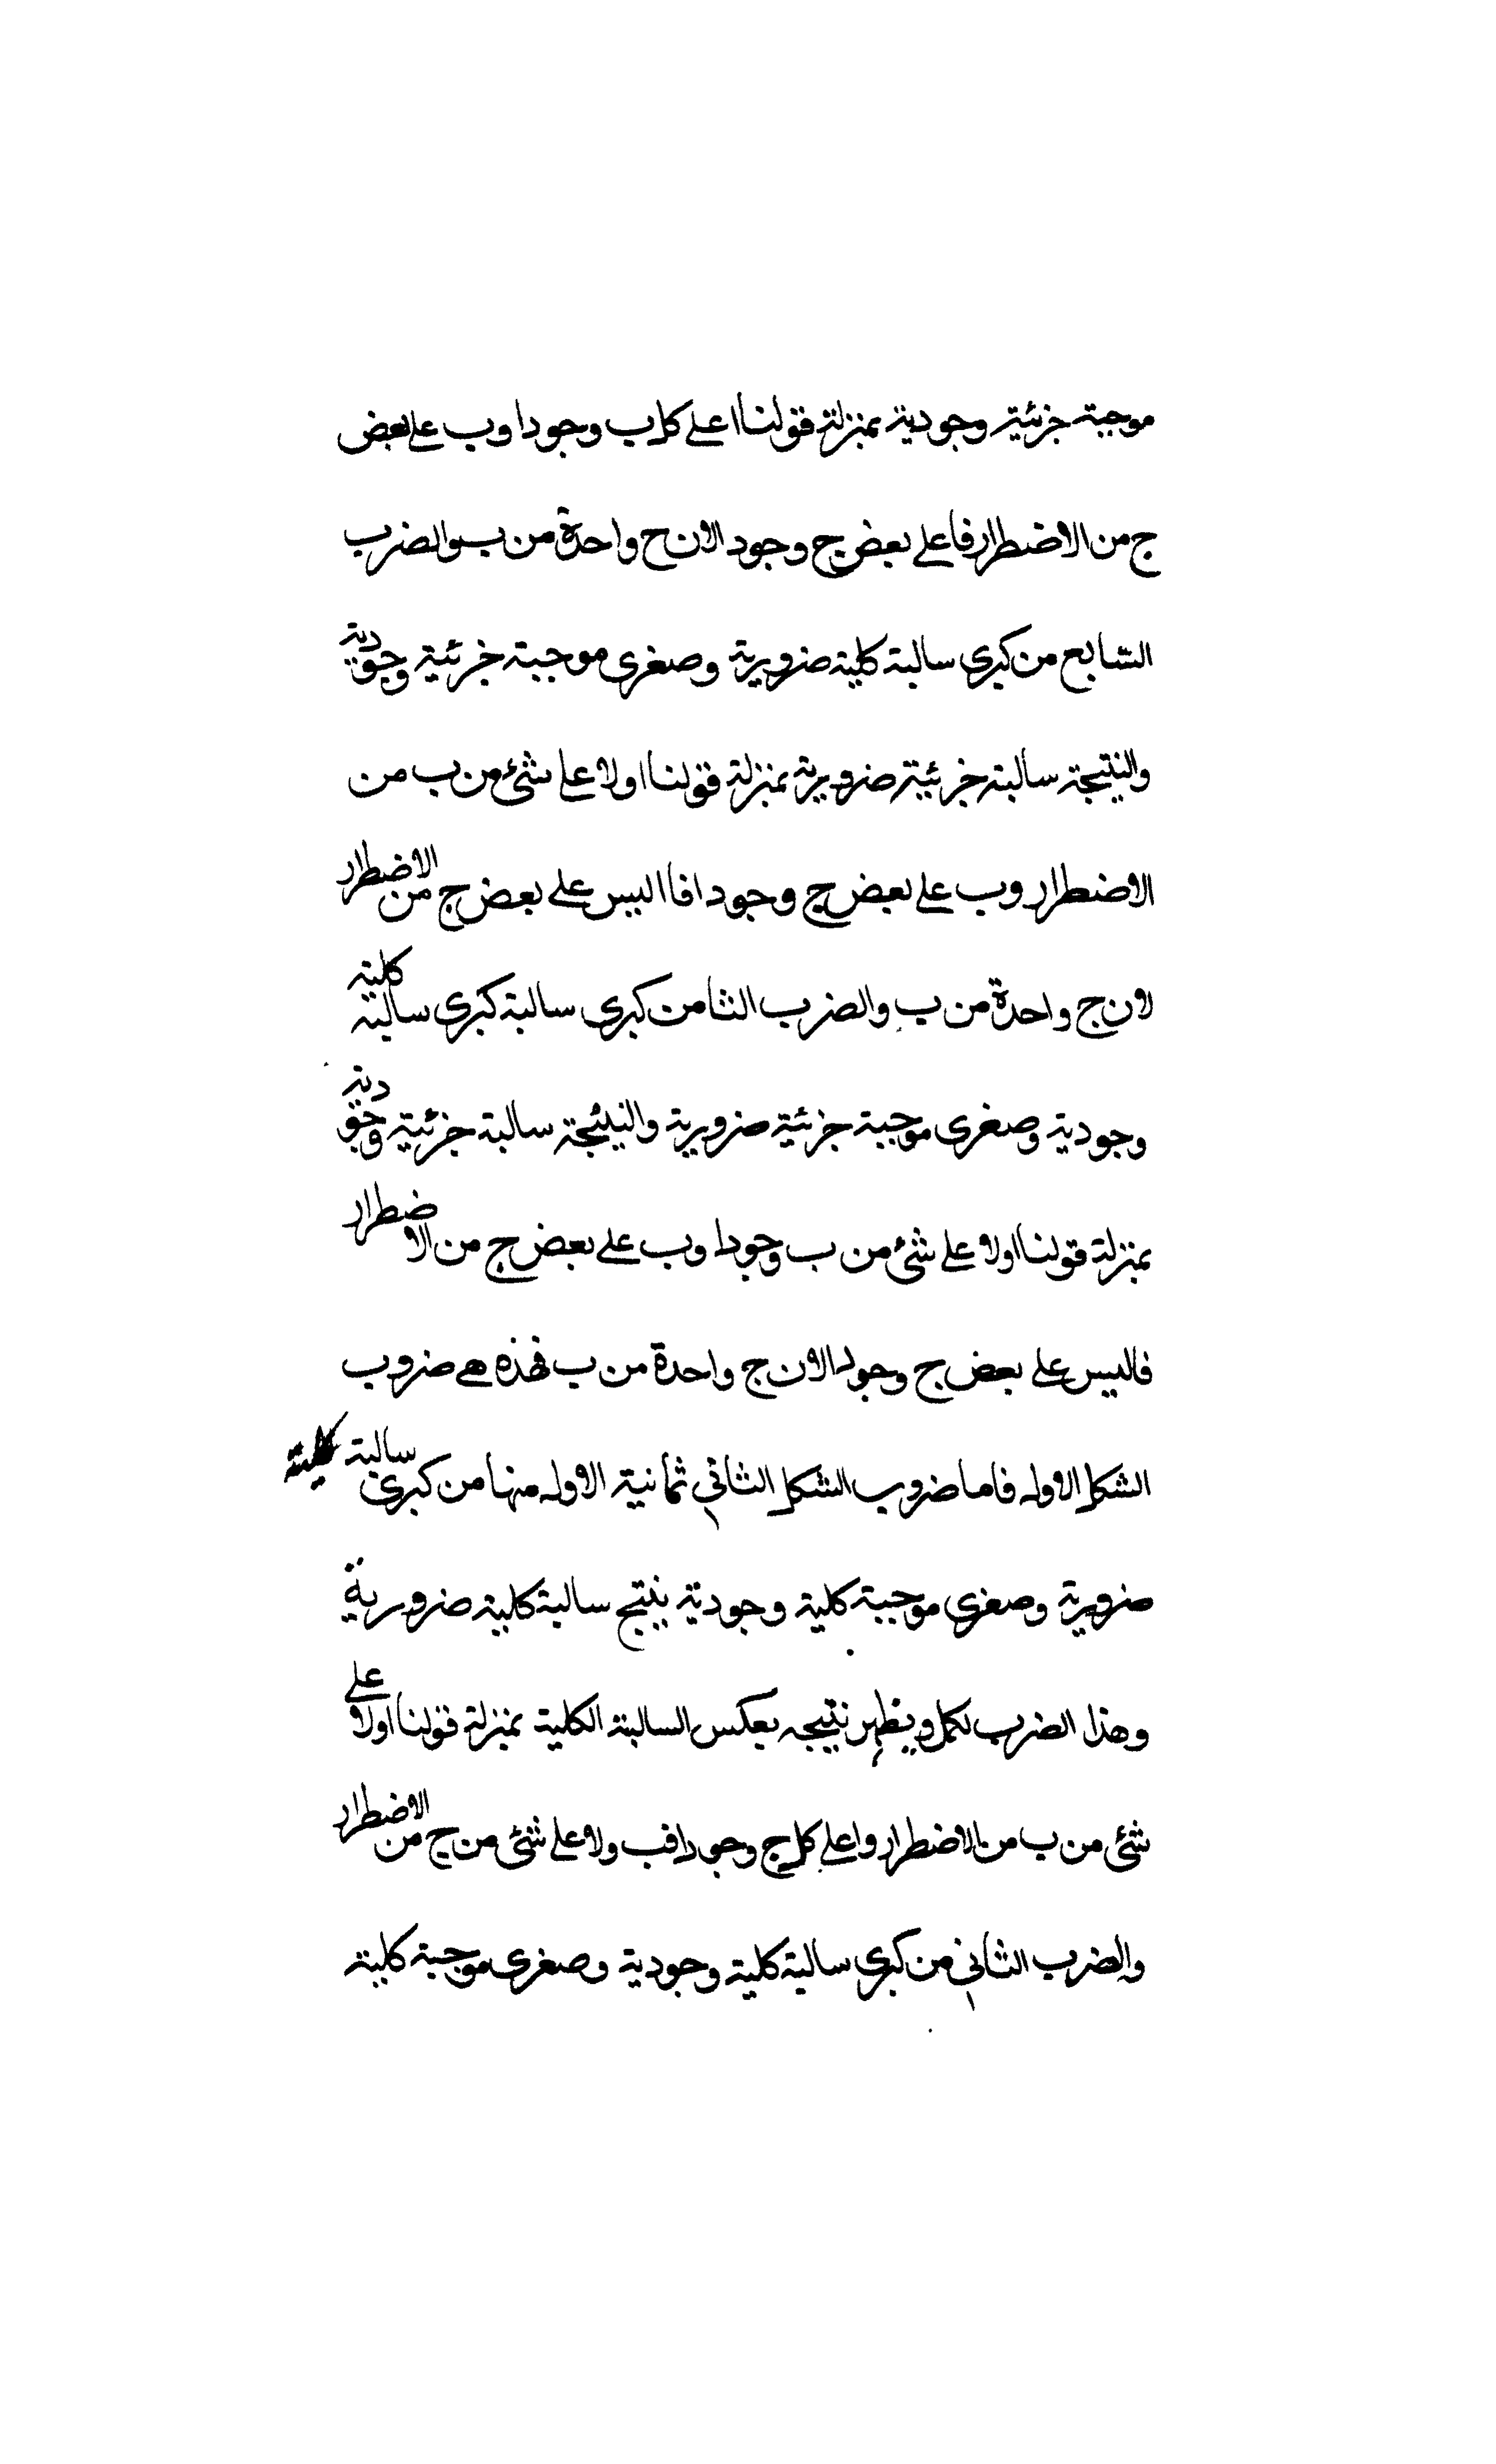 موجبة جزئية وجودية بمنزلة قولنا ا على كل ب وجودا وب على بعض
ج من الاضطرار فا على بعض ج وجود الان ج واحدة من ب والضرب
السّابع من كبرى سالبة كلية ضرورية وصغرى موجبة جزئية وجودية
والنتيجة سالبة جزئية ضرورية بمنزلة قولنا ا ولا على شئ من ب من
الاضطرار وب على بعض ج وجودا فا اليس على بعض ج من الاضطرار
لان ج واحدة من ب والضرب الثامن كبرى سالبة كبرى سالبة كلية
وجودية وصغرى موجبة جزئية ضرورية والنتيجة سالبة جزئية وجودية
بمنزلة قولنا ا ولا على شئ من ب وجودا وب على بعض ج من الاضطرار
فاليس على بعض ج وجودا لان ج واحدة من ب فهذه هى ضروب
الشكل الاوله فاما ضروب الشكل الثاني ثمانية الاوله منها من كبرى سالبة كلية
ضرورية وصغرى موجبة كلية وجودية ينتج سالبة كلية ضرورية
وهذا الضرب يكمل ويظهر نتيجه بعكس السالبة الكلية بمنزلة قولنا ا ولا على
شئ من ب من الاضطرار وا على كل ج وجودا فب ولا على شئ من ج من الاضطرار
والضرب الثاني من كبرى سالبة كلية وجودية وصغرى موجبة كلية